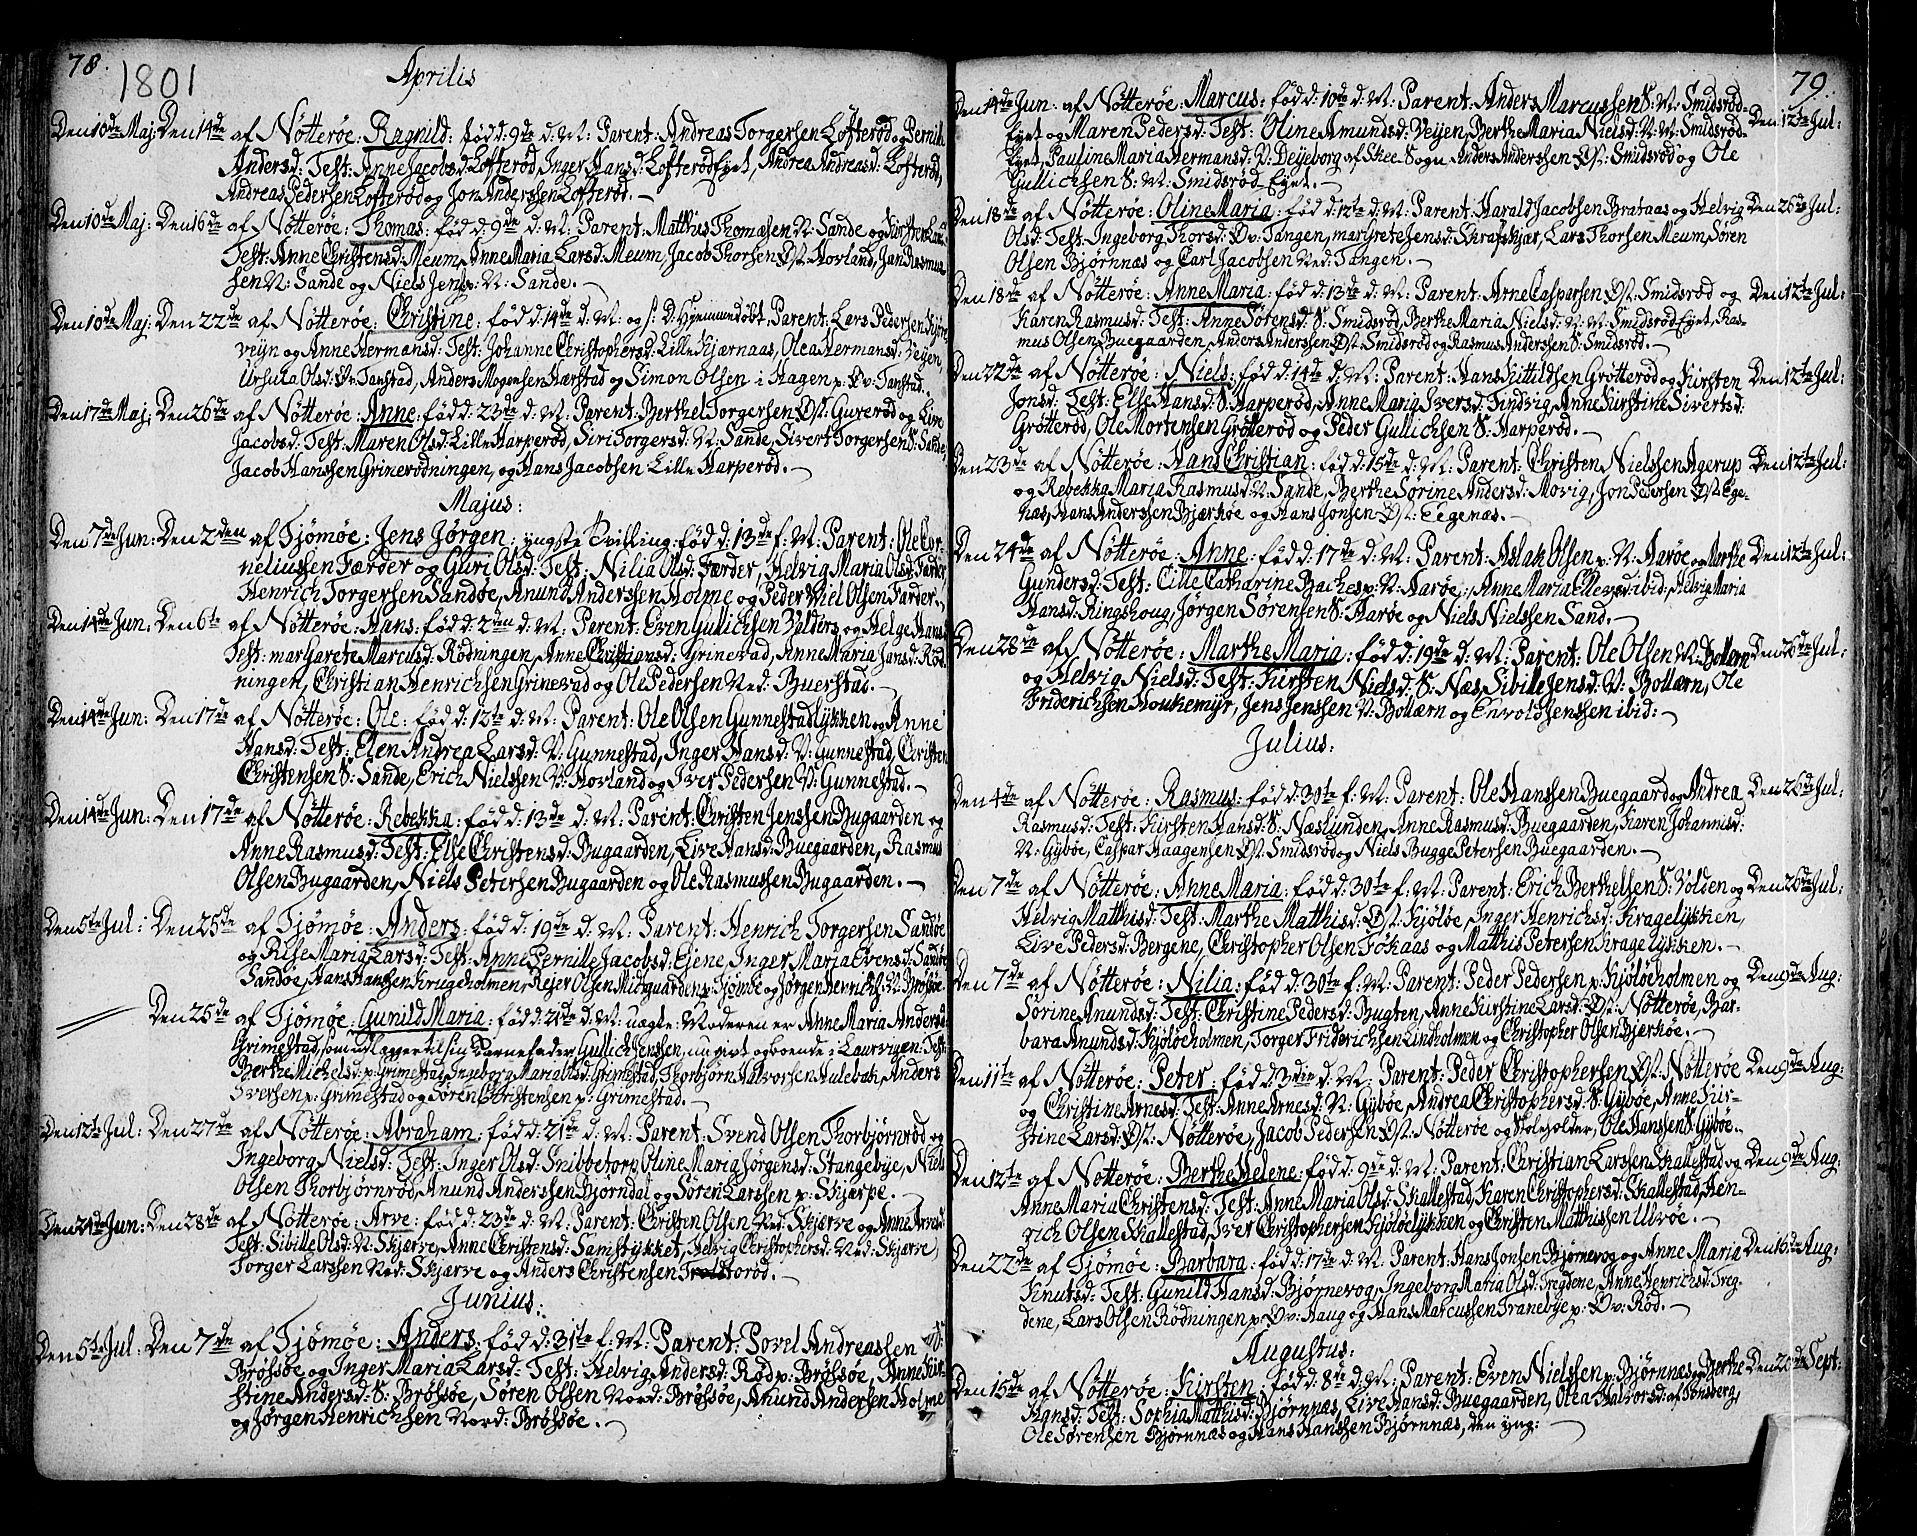 78.
1801
Aprilis
Den 10de Maj: Den 14de af Nötterøe: Ragnild: född: 9de d: M: Parent: Andreas Torgersen Lofterød, Pernille
Andersd: Test: Anne Jacobsd: Lofterød, Inger Hansd: Lofterød Eyet, Andrea Andreasd: Lofterød,
Andreas Pedersen Lofterød og Jon Anderssen Lofterød.
Den 10de Maj: Den 16de af Nötterøe: Thomas: född: 9de d: M: Parent: Matthis Thomasen N: Sande og Kirsten
Test: Anne Christensd: Meum, Anne Maria Larsd: Meum, Jacob Thorsen Øst: Hovland, Jan Rasmus-
sen N: Sande og Niels Jens: N: Sande.
Den 10de Maj: Den 22de af Nötterøe: Christine: född: 14de d: M: og s: D: Hjemmedöbt, Parent: Lars Pedersen
veyn og Anne Hermansd: Test: Johanne Christophersd: Lille Kjærnaas, Olea Hermansd: Veyen,
Ursula Olsd: Øv: Tanstad, Anders Mogensen Hærstad og Simon Olsen i Hagen p: Øv: Tanstad.
Den 17de Maj: Den 26de af Nötterøe: Anne: född: 23de d: M: Parent: Berthel Torgersen Øst: Gurerød og Live
Jacobsd: Test: Maren Olsd: Lille Harperød, Siri Torgersd: N: Sande, Sivert Torgersen S: Sande,
Jacob Hanssen Grinerødningen, og Hans Jacobsen Lille Harperød.
Majus:
Den 7de Jun: Den 2den af Tjömöe: Jens Jørgen: yngste Tvilling: född: 13de f: M: Parent: Ole Cor-
neliussen Færder og Guri Olsd: Test: Nilia Olsd: Færder, Helvig Maria Olsd: Færder
Henrich Torgersen Sandøe, Anund Anderssen Holme og Peder Wiel Olsen Færder.
Den 14de Jun: Den 6te af Nötterøe: Hans: född: 2den d: M: Parent: Even Gullichsen Bolders og Helge Hans
Test: margarete Marcusd: Rødningen, Anne Christiansd: Grinerød, Anne Maria Jansd: Rød-
ningen, Christian Henrichsen Grinerød og Ole Pedersen Ned: Buerstad.
Den 14de Jun: Den 17de af Nötterøe: Ole: född: 12te d: M: Parent: Ole Olsen Gunnestadlykken og Anne
Hansd: Test: Elen Andrea Larsd: V: Gunnestad, Inger Hansd: V: Gunnestad, Christen
Christensen S: Sande, Erich Nielssen V: Hovland og Iver Pedersen V: Gunnestad.
Den 14de Jun: Den 17de af Nötterøe: Rebekka: född: 13de d: M: Parent: Christen Jenssen Bugaarden og
Anne Rasmusd: Test: Else Christensd: Bugaarden, Live Hansd: Buegaarden, Rasmus
Olsen Bugaarden, Niels Petersen Bugaarden og Ole Rasmussen Bugaarden.
Den 5te Jul: Den 25de af Tjömöe: Anders: född: 19de d: M: Parent: Henrich Torgersen Sandøe
og Else Maria Larsd: Test: Anne Pernille Jacobsd: Ejene, Inger Maria Evensd: Sandøe
Sandøe, Hans Hansen Krugeholmen, Rejer Olsen Midtgaarden p: Tjömöe og Jørgen Henrichs: N: Brøtsøe
Den 25de af Tjömöe: Gunild Maria: född: 21de d: M: uægte: Moderen er Anne Maria Andersd:
Grimestad, som udlægger til sin Barnefader Gullich Jenssen, nu givt og boende i Laurvigen: Test:
Berthe Michelsd: p: Grimestad, Ingeborg Maria Olsd: Grimestad, Thorbjørn Halvorsen Hulebak, Anders
Iversen p: Grimestad og Søren Christensen p: Grimestad.
Den 12te Jul: Den 27de af Nötterøe: Abraham: född: 21de d: M: Parent: Svend Olsen Thorbjørnrød og
Ingeborg Nielsd: Test: Inger Olsd: Snibbetorp, Oline Maria Jørgensd: Stangebye, Niels
Olsen Thorbjørnrød, Anund Anderssen Bjørndal og Søren Larssen p: Skjærpe.
Den 24de Jun: Den 28de af Nötterøe: Arve: född: 23de d: M: Parent: Christen Olsen Ned: Skjærve og Anne Arvesd:
Test: Sibille Olsd: N: Skjærve, Anne Christensd: Samstykket, Helvig Christophersd: Ned: Skjærve,
Torger Larssen Ned: Skjærve og Anders Christensen
Junius:
Den 5te Jul: Den 7de af Tjömöe: Anders: född: 31te f: M: Parent: Povel Andreassen
Brøtsøe og Inger Maria Larsd: Test: Helvig Andersd: Rød p: Brøtsøe, Anne Kir-
stine Andersd: S: Brøtsøe, Søren Olsen Nord: Brøtsøe, Anund Andersen Holme
og Jørgen Henrichsen Nord: Brøtsøe.
79.
Den 14de Jun: af Nötterøe: Marcus: född: 10de d: M: Parent: Anders Marcussen S: M: Smidsrød- Den 12te Jul:
Eyet og Maren Pedersd: Test: Oline Amundsd: Veijen, Berthe Maria Nielsd: N: M: Smidsrød-
Eyet, Pauline Maria Hermansd: V: Deyeborg af Skee Sogn, Anders Anderssen Øst: Smidsrød og Ole
Gullichsen S: M: Smidsrød Eyet.
Den 18de af Nötterøe: Oline Maria: född: 12te d: M: Parent: Harald Jacobsen Brataas og Helvig Den 26de Jul:
Olsd: Test: Ingeborg Thorsd: Øv: Tangen, margrete Jensd: Skrafskjær, Lars Thorsen Meum, Søren
Olsen Bjørnnæs og Carl Jacobsen Ned: Tangen.
Den 18de af Nötterøe: Anne Maria: född: 13de d: M: Parent: Arne Casparsen Øst: Smidsrød og Den 12te Jul:
Karen Rasmusd: Test: Anne Sørensd: S: Smidsrød, Berthe Maria Nielsd: N: M: Smidsrød Eyet, Ras-
mus Olsen Buegaarden, Anders Anderssen Øst: Smidsrød og Rasmus Anderssen S: Smidsrød.
Den 22de af Nötterøe: Niels: född: 14de d: M: Parent: Hans Kittildsen Grötterød og Kirsten Den 12te Jul:
Jonsd: Test: Else Hansd: S: Harperød, Anne Maria Iversd: Tindvig, Anne Kirstine Sivertsd:
Grötterød, Ole Mortensen Grötterød og Peder Gullichsen S: Harperød.
Den 23de af Nötterøe: Hans Christian: född: 15de d: M: Parent: Christen Nielssen Agerup Den 12te Jul:
og Rebekka Maria Rasmusd: V: Sande, Berthe Sørine Andersd: Movig, Jon Pedersen Øst: Ege-
næs, Hans Anderssen Bjærkøe og Hans Jonsen Øst: Eegenæs.
Den 24de af Nötterøe: Anne: född: 17de d: M: Parent: Aslak Olsen p: N: Aarøe og Marthe Den 12te Jul:
Gundersd: Test: Cille Catharine Baches p: N: Aarøe, Anne Maria Ellevsd: ibid: Helvig Maria
Hansd: Ringshoug, Jørgen Sørensen S: Aarøe og Niels Nielssen Sand.
Den 28de af Nötterøe: Marthe Maria: född: 19de d: M: Parent: Ole Olsen N: Bollærn Den 26de Jul:
og Helvig Nielsd: Test: Kirsten Nielsd: S: Næs, Sibille Jensd: V: Bollærn, Ole
Friderichsen Houkemyr, Jens Jenssen V: Bollærn og Envold Jenssen ibid:
Julius:
Den 4de af Nötterøe: Rasmus: född: 30te f: M: Parent: Ole Hanssen Buegaard og Andrea Den 26de Jul:
Rasmusd: Test: Kirsten Hansd: S: Næslunden, Anne Rasmusd: Buegaarden, Karen Johannisd:
N: Gybøe, Caspar Haagensen Øst: Smidsrød og Niels Bugge Petersen Buegaarden.
Den 7de af Nötterøe: Anne Maria: född: 30te f: M: Parent: Erich Berthelsen S: Volden og Den 26de Jul:
Helvig Matthisd: Test: Marthe Matthisd: Øst: Kjøløe, Inger Henrichsd: Kragelykken,
Live Pedersd: Bergene, Christopher Olsen Fokaas og Matthis Petersen Kragelykken.
Den 7de af Nötterøe: Nilia: född: 30te f: M: Parent: Peder Pedersen p: Kjøløeholmen og Den 9de Aug:
Sørine Anundsd: Test: Christine Pedersd: Bugten, Anne Kirstine Larsd: Øst: Nötterøe, Bar-
bara Anundsd: Kjøløeholmen, Torger Friderichsen Lindholmen og Christopher Olsen Bjærkøe.
Den 11te af Nötterøe: Peter: född: 3die d: M: Parent: Peder Christophersen Øst: Nötterøe Den 9de Aug:
og Christine Arnesd: Test: Anne Arnesd: N: Gybøe, Andrea Christophersd: S: Gybøe, Anne Kir-
stine Larsd: Øst: Nötterøe, Jacob Pedersen Øst: Nötterøe og Skoleholder, Ole Hanssen S: Gybøe.
Den 12te af Nötterøe: Berthe Helene: född: 9de d: M: Parent: Christian Larssen Skallestad og Den 9de Aug:
Anne Maria Christensd: Test: Anne Maria Olsd: Skallestad, Karen Christophersd: Skallestad, Hen-
rich Olsen Skallestad, Iver Christophersen Kjøløelykken og Christen Matthissen Ulvøe.
Den 22de af Tjömöe: Barbara: född: 17de d: M: Parent: Hans Jonsen Bjørnevog og Anne Maria Den 16de Aug:
Knutsd: Test: Gunild Hansd: Bjørnevog, Ingeborg Maria Olsd: Tregdene, Anne Henrichsd: Treg-
dene, Lars Olsen Rødningen p: Øv: Haug og Hans Marcussen Tranebye p: Øv: Rød.
Augustus:
Den 15de af Nötterøe: Kirsten: född: 8de d: M: Parent: Even Nielssen p: Bjørnnæs og Berthe Den 20de Sept:
Hansd: Test: Sophia Matthisd: Bjørnnæs, Live Hansd: Buegaarden, Olea Halvorsd: af Tønsberg,
Ole Sørensen Bjørnnæs og Hans Hanssen Bjørnnæs, den yng: